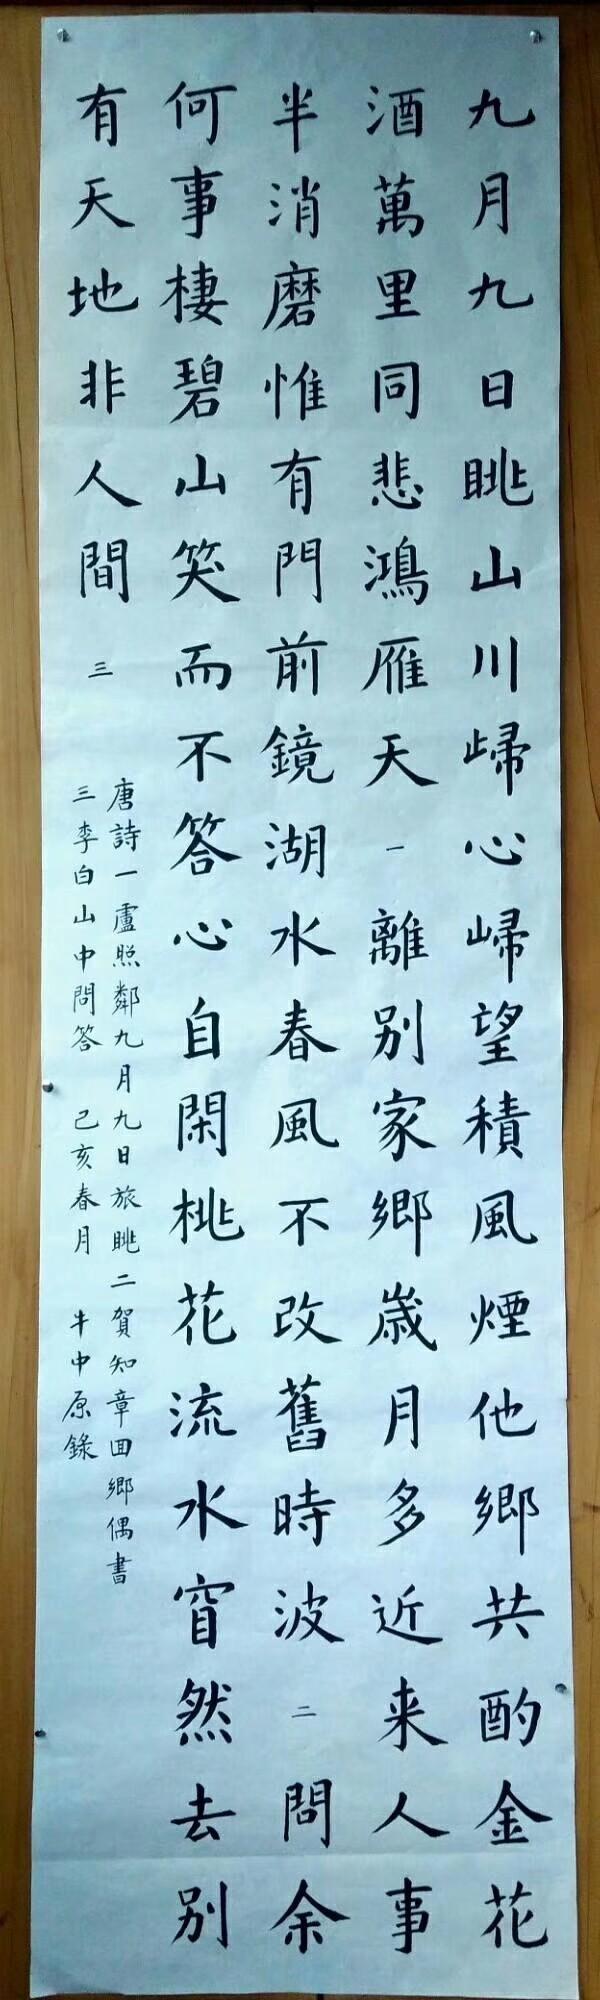 九月九日眺山川歸心歸望積風煙他鄉共酌金花
酒萬里同悲鴻雁天 一 離别家鄉歲月多近来人事
半消磨惟有門前鏡湖水春風不改舊時波 二 問余
何事棲碧山笑而不答心自閑桃花流水窅然去别
有天地非人間 三
唐詩一盧照鄰九月九日旅眺二賀知章回鄉偶書
三李白山中問答 己亥春月 牛中原錄